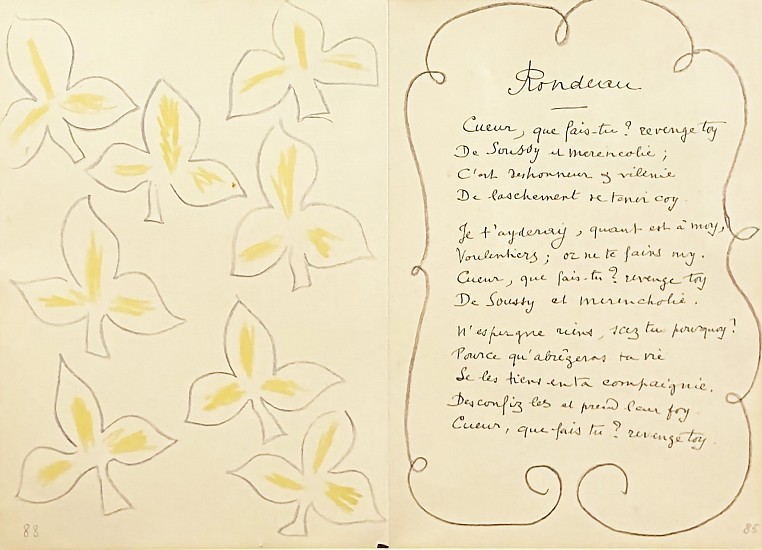 88
Rondeau
Cueur, que fais-tu ? revenge toy
De Soussy et merencolie ;
C'est deshonneur & vilenie
De laschement se tenir coy.
Je t'ayderay, quant est à moy,
Voulentiers ; or ne te fains my.
Cueur, que fais-tu ? revenge toy
De Soussy et merencholie.
N'espergne riens, scez tu pourquoy ?
Pource qu'abrègeras ta vie
Se les tiens en ta compaignie.
Desconfiz les et prend leur foy.
Cueur, que fais tu ? revenge toy.
85